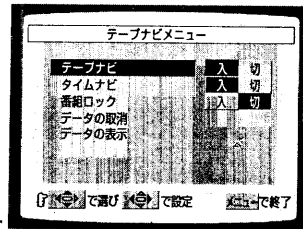 テープナビメニュー
テープナビ 入 切
タイムナビ 入 切
番組ロック 入 切
データの取消
データの表示
で選び で設定 メニューで終了